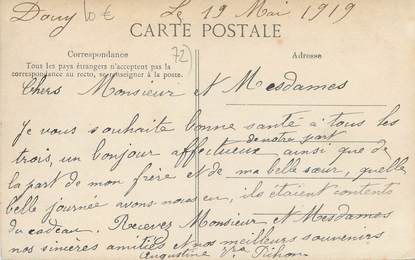 Douy 10 € Le 19 Mai 1919
CARTE POSTALE
Correspondance
Adresse
72
Tous les pays étrangers n'acceptent pas la
correspondance au recto, se renseigner à la poste.
Chers Monsieur et Mesdames
Je vous souhaite bonne santé à tous les
trois, un bonjour affectueux de notre part ainsi que de
la part de mon frère et de ma belle sœur, quelle
belle journée avons nous eu, ils étaient contents
du cadeau. Recevez Monsieur et Mesdames
nos sincères amitiés et nos meilleurs souvenirs
Augustine Pichon